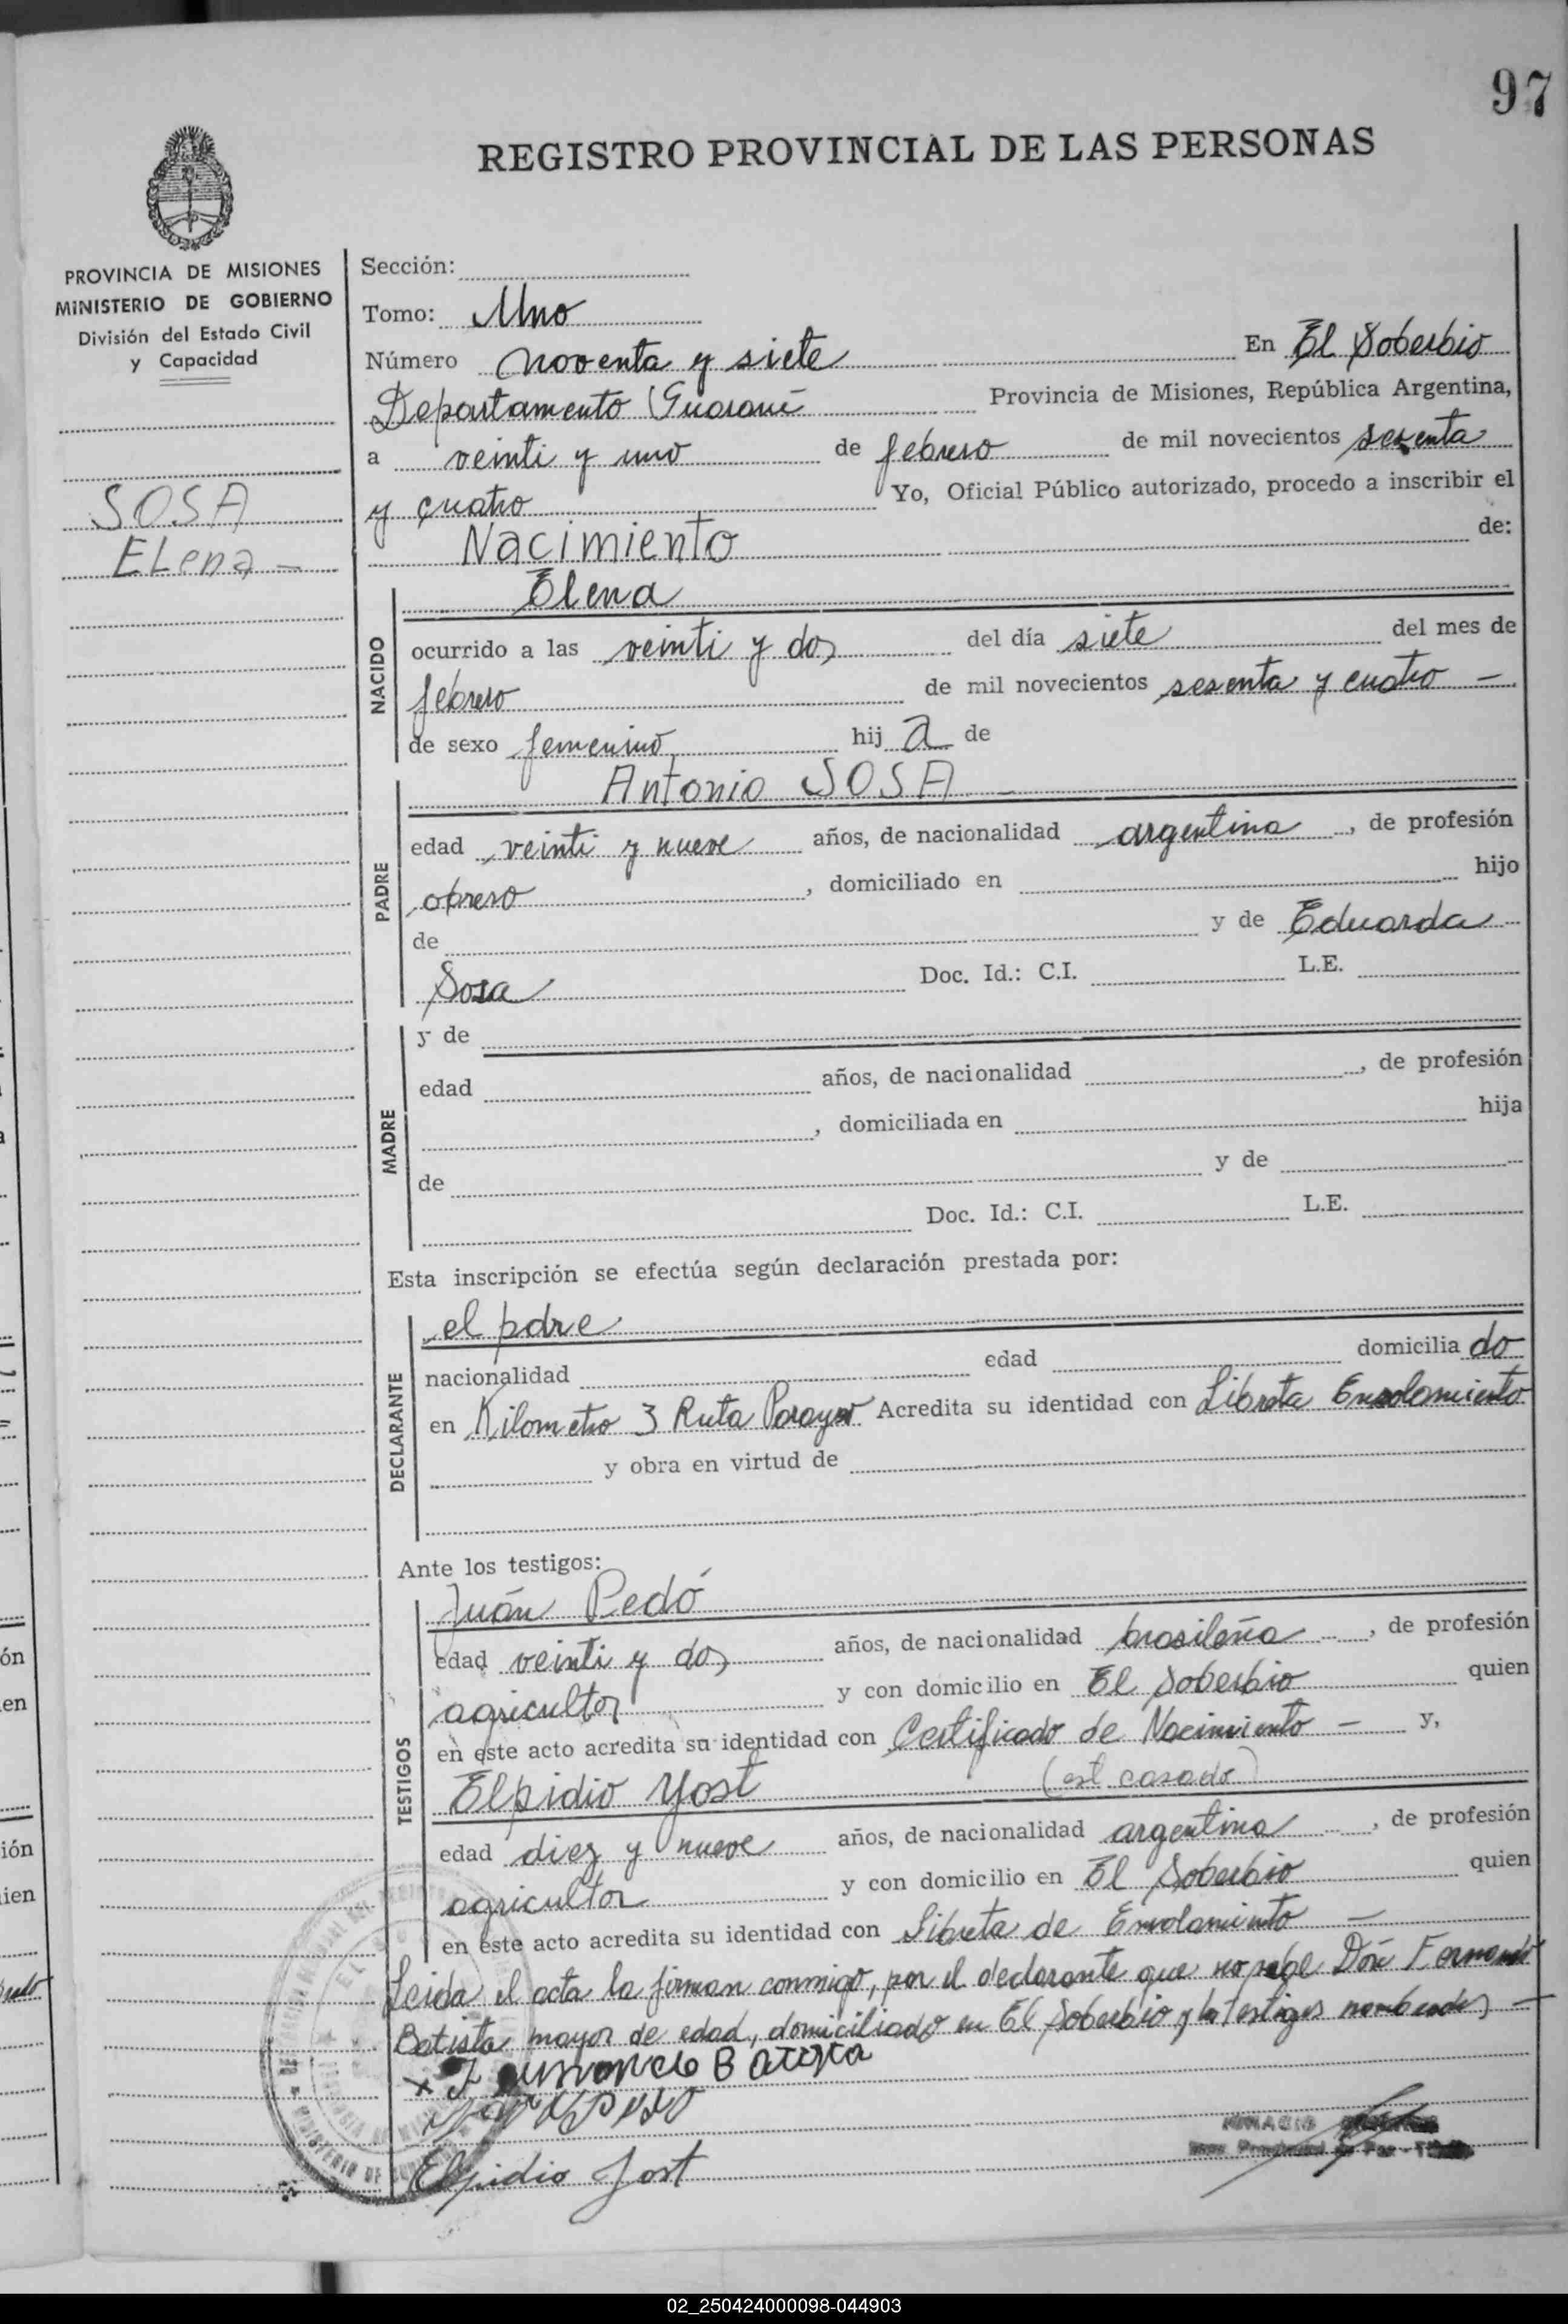 97
REGISTRO PROVINCIAL DE LAS PERSONAS
PROVINCIA DE MISIONES
MINISTERIO DE GOBIERNO
División del Estado Civil
y Capacidad
SOSA
ELena -
Sección:
Tomo: Uno
Número noventa y siete En El Soberbio
Departamento Guaraní Provincia de Misiones, República Argentina,
a veinti y uno de febrero de mil novecientos sesenta
y cuatro Yo, Oficial Público autorizado, procedo a inscribir el
Nacimiento de:
NACIDO
Elena
ocurrido a las veinti y dos del día siete del mes de
febrero de mil novecientos sesenta y cuatro -
de sexo femenino hij a de
PADRE
Antonio SOSA -
edad veinti y nueve años, de nacionalidad argentina, de profesión
obrero, domiciliado en hijo
de y de Eduarda
Sosa Doc. Id.: C.I. L.E.
MADRE
y de
edad años, de nacionalidad, de profesión
, domiciliada en hija
de y de
Doc. Id.: C.I. L.E.
Esta inscripción se efectúa según declaración prestada por:
DECLARANTE
el pdre
nacionalidad edad domicilia do
en Kilometro 3 Ruta Acredita su identidad con Libreta Enrolamiento
y obra en virtud de
Ante los testigos:
TESTIGOS
Juán Pedó
edad veinti y dos años, de nacionalidad brasileña, de profesión
agricultor y con domicilio en El Soberbio quien
en este acto acredita su identidad con Certificado de Nacimiento - y,
Elpidio Yost (est casado)
edad diez y nueve años, de nacionalidad argentina, de profesión
agricultor y con domicilio en El Soberbio quien
en este acto acredita su identidad con Libreta de Enrolamiento -
Leida el acta la firman conmigo, por el declarante que no sabe Dón Fernando
Batista mayor de edad, domiciliado en El Soberbio y los testigos nombrados -
x Batista
Elpidio Jost
02_250424000098-044903